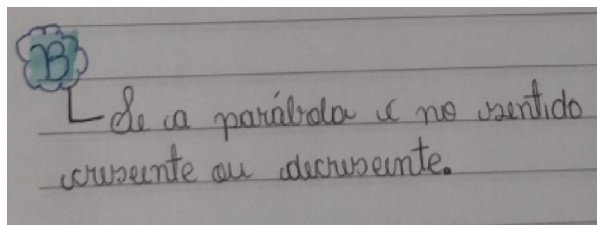 B
Se a parábola é no sentido
crescente ou decrescente.